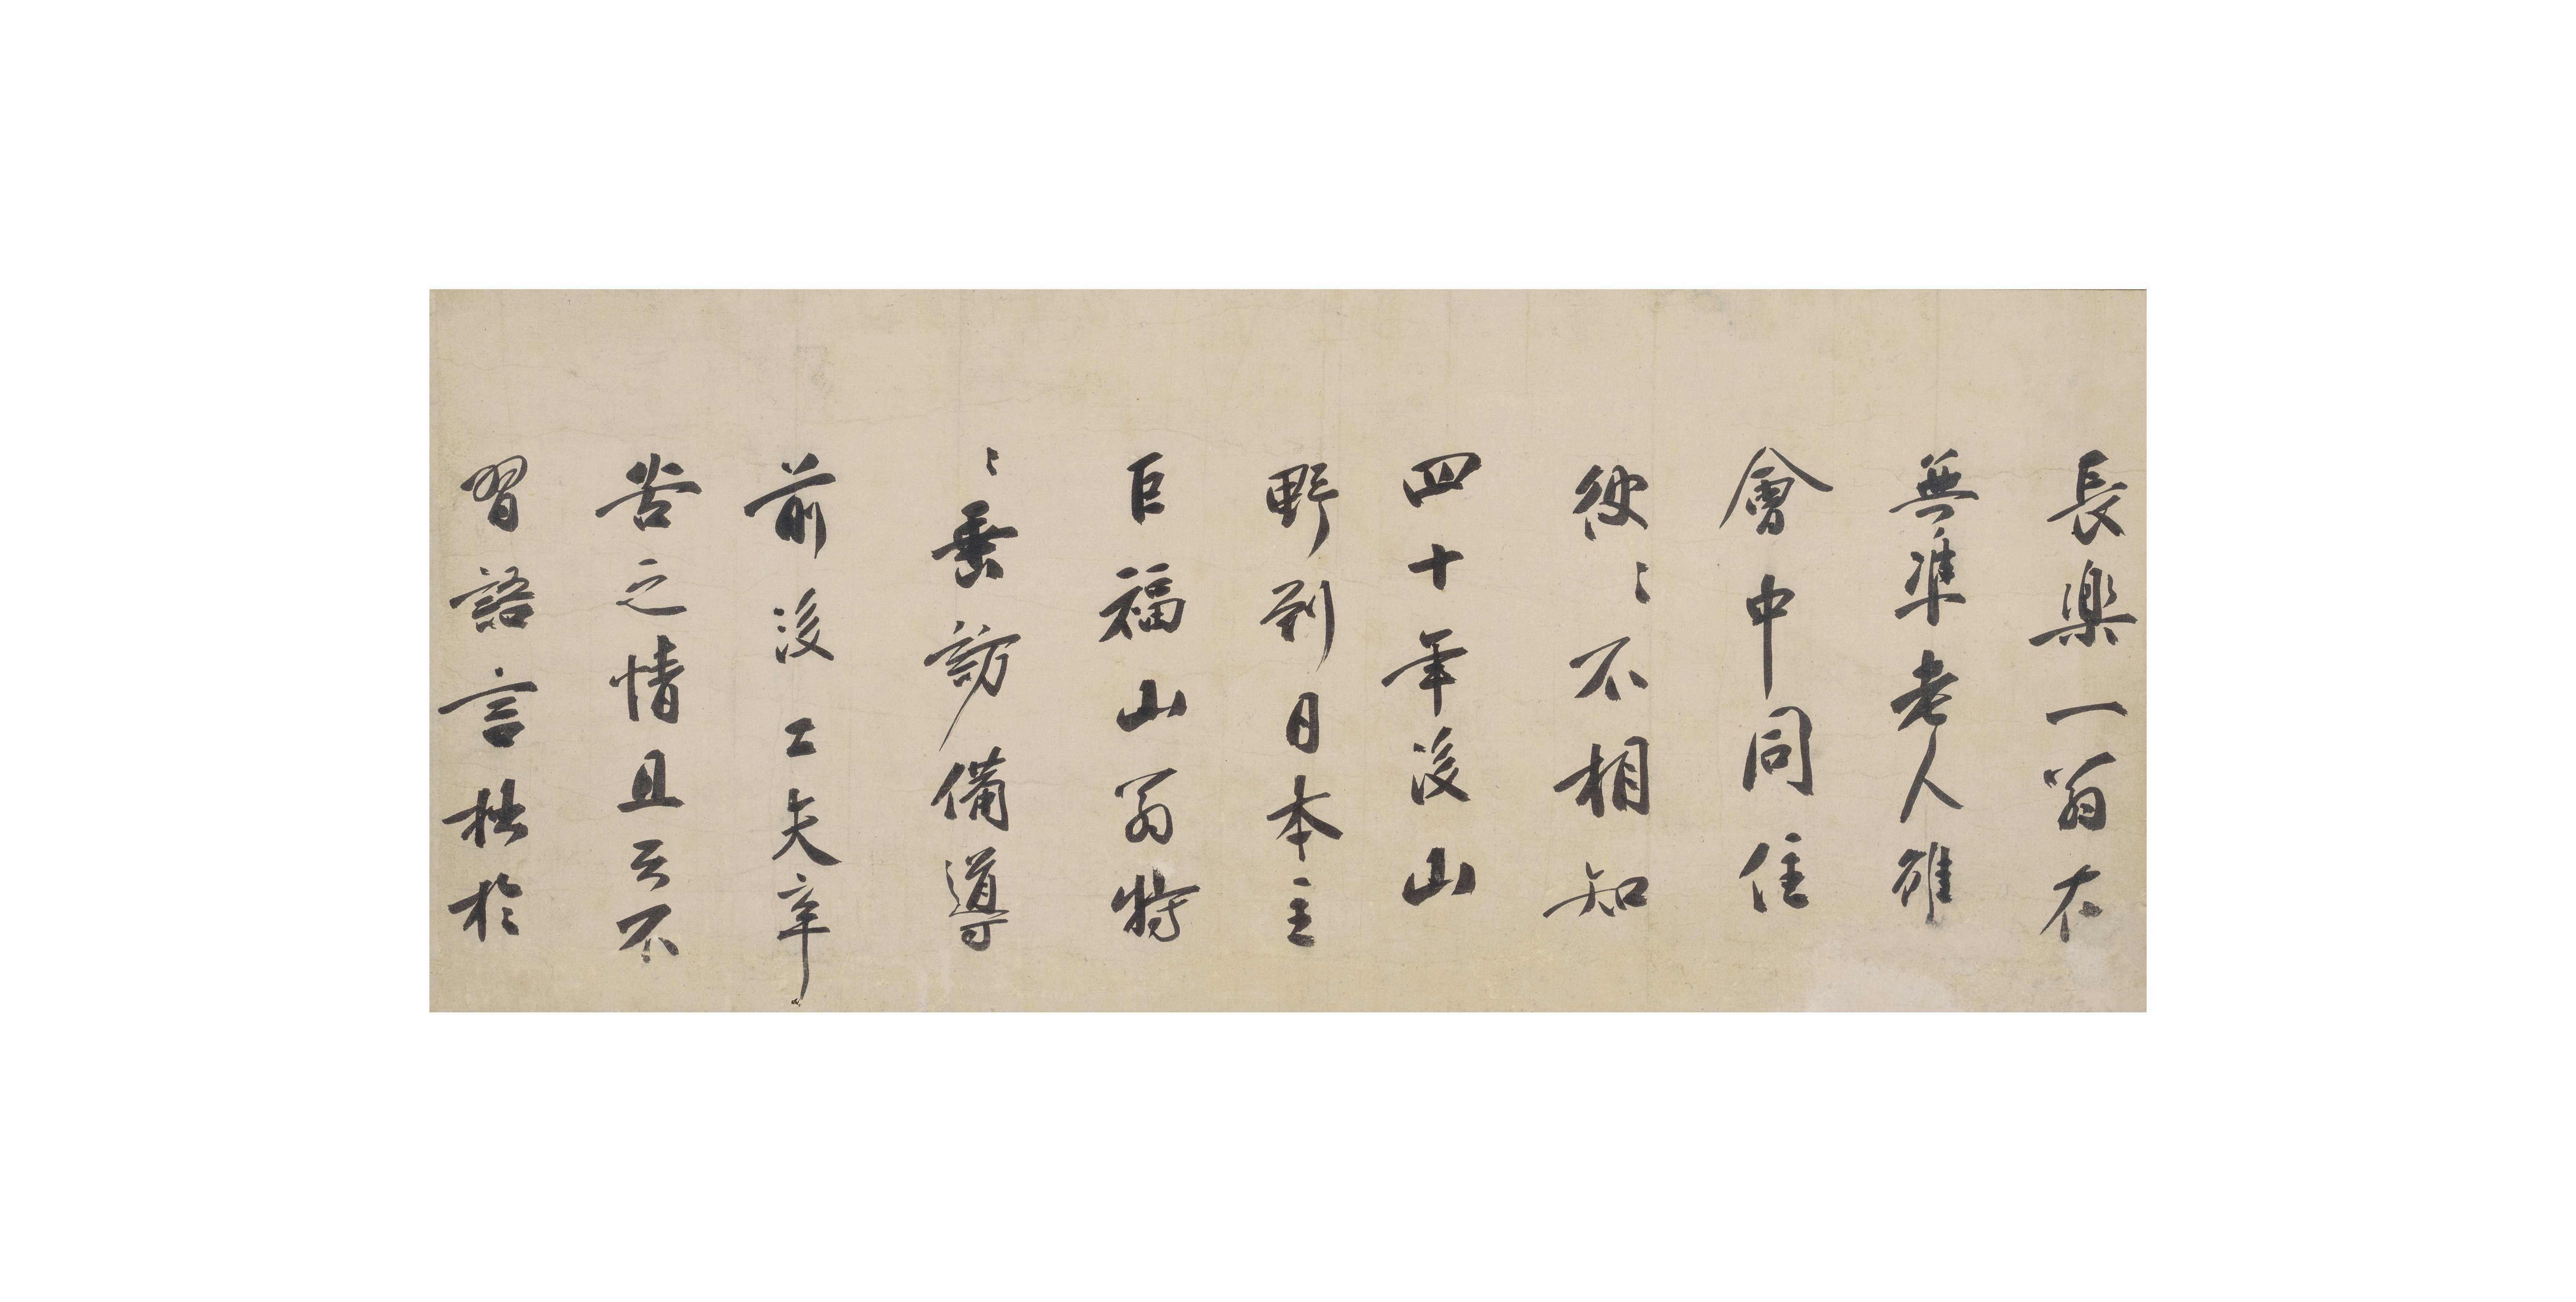 長楽一翁在
無準老人雖
會中同住
彼〻不相知
四十年後山
野到日本主
巨福山翁特
〻垂訪備導
前後工夫辛
苦之情且云不
習語言拙於